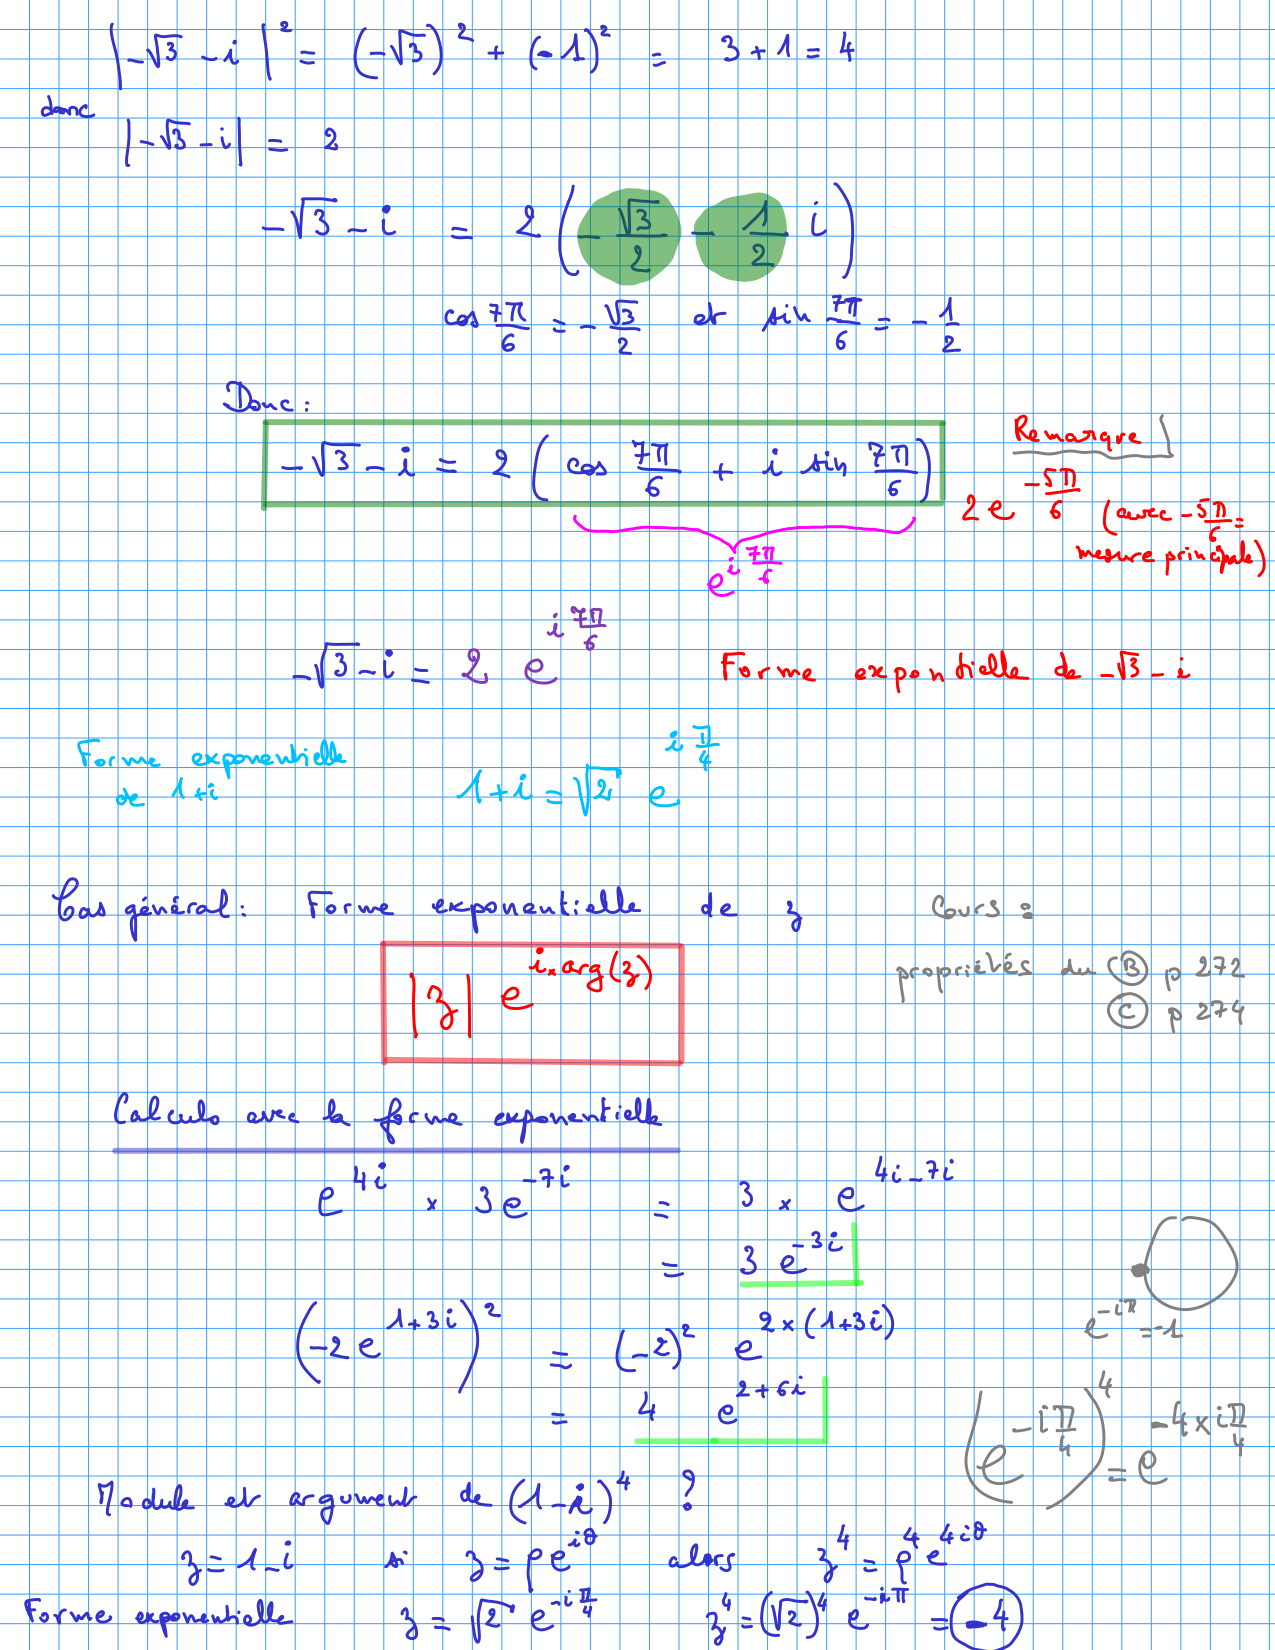 |-√3 - i|² = (-√3)² + (-1)² = 3 + 1 = 4
donc
|-√3 - i| = 2
-√3 - i = 2 (-√3/2 - 1/2 i)
cos 7π/6 = -√3/2 et sin 7π/6 = -1/2
Donc :
-√3 - i = 2 (cos 7π/6 + i sin 7π/6)
e^(i 7π/6)
Remarque
2 e^(-5π/6) (avec -5π/6 =
mesure principale)
-√3 - i = 2 e^(i 7π/6)
Forme exponentielle de -√3 - i
Forme exponentielle
de 1+i
1+i = √2 e^(i π/4)
Cas général : Forme exponentielle de z
|z| e^(i×arg(z))
Cours :
propriétés du B p 272
C p 274
Calculs avec la forme exponentielle
e^(4i) × 3e^(-7i) = 3 × e^(4i-7i)
= 3 e^(-3i)
(-2 e^(1+3i))² = (-2)² e^(2×(1+3i))
= 4 e^(2+6i)
e^(-iπ) = -1
(e^(-iπ/4))^4 = e^(-4×iπ/4)
Module et argument de (1-i)^4 ?
z = 1-i si z = ρe^(iθ) alors z^4 = ρ^4 e^(4iθ)
Forme exponentielle z = √2 e^(-iπ/4) z^4 = (√2)^4 e^(-iπ) = -4